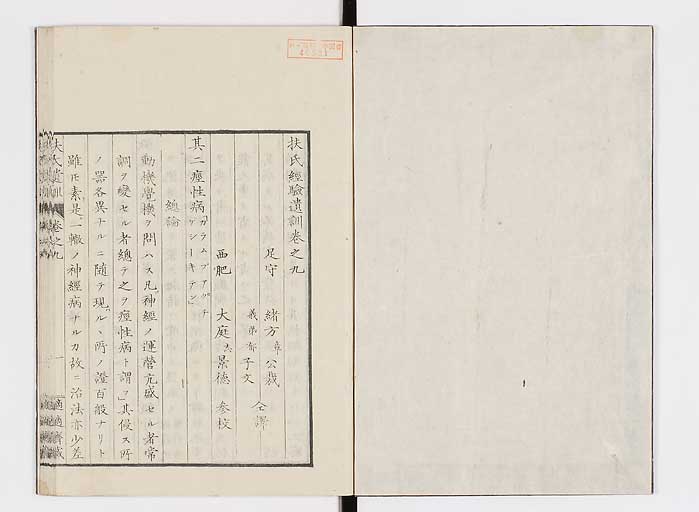 扶氏經驗遺訓卷之九
足守 緒方章公裁
義弟郁子文 仝譯
西肥 大庭忞景德 參校
其二痙性病「カラムプアグチ
ゲシーキテン」
總論
動機覺機ヲ問ハス凡神經ノ運營亢盛セル者常
調ヲ變セル者總テ之ヲ痙性病ト謂フ」其侵ス所
ノ器各異ナルニ随テ現ルヽ所ノ證百般ナリト
雖𪜈素是一轍ノ神經病ナルカ故ニ治法亦少差
扶氏遺訓 卷之九
一
適適齋藏